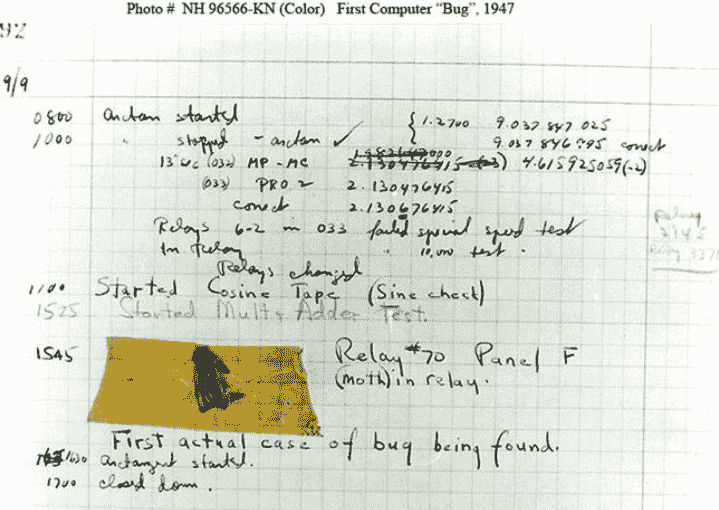 Photo # NH 96566-KN (Color) First Computer “Bug”, 1947
92
9/9
0800 arctan started { 1.2700 9.037 847 025
1000 " stopped - arctan ✓ 9.037 846 995 correct
13"uc (032) MP - MC 2.130476415 4.615925059(-2)
(033) PRO 2 2.130476415
correct 2.130676415
Relays 6-2 in 033 failed special speed test
In Relay " 10,000 test .
Relay
2145
Relay 3370
Relays changed
1100 Started Cosine Tape (Sine check)
1525 Started Mult + Adder Test.
1545 Relay #70 Panel F
(moth) in relay.
First actual case of bug being found.
1630 arctangent started.
1700 closed down .